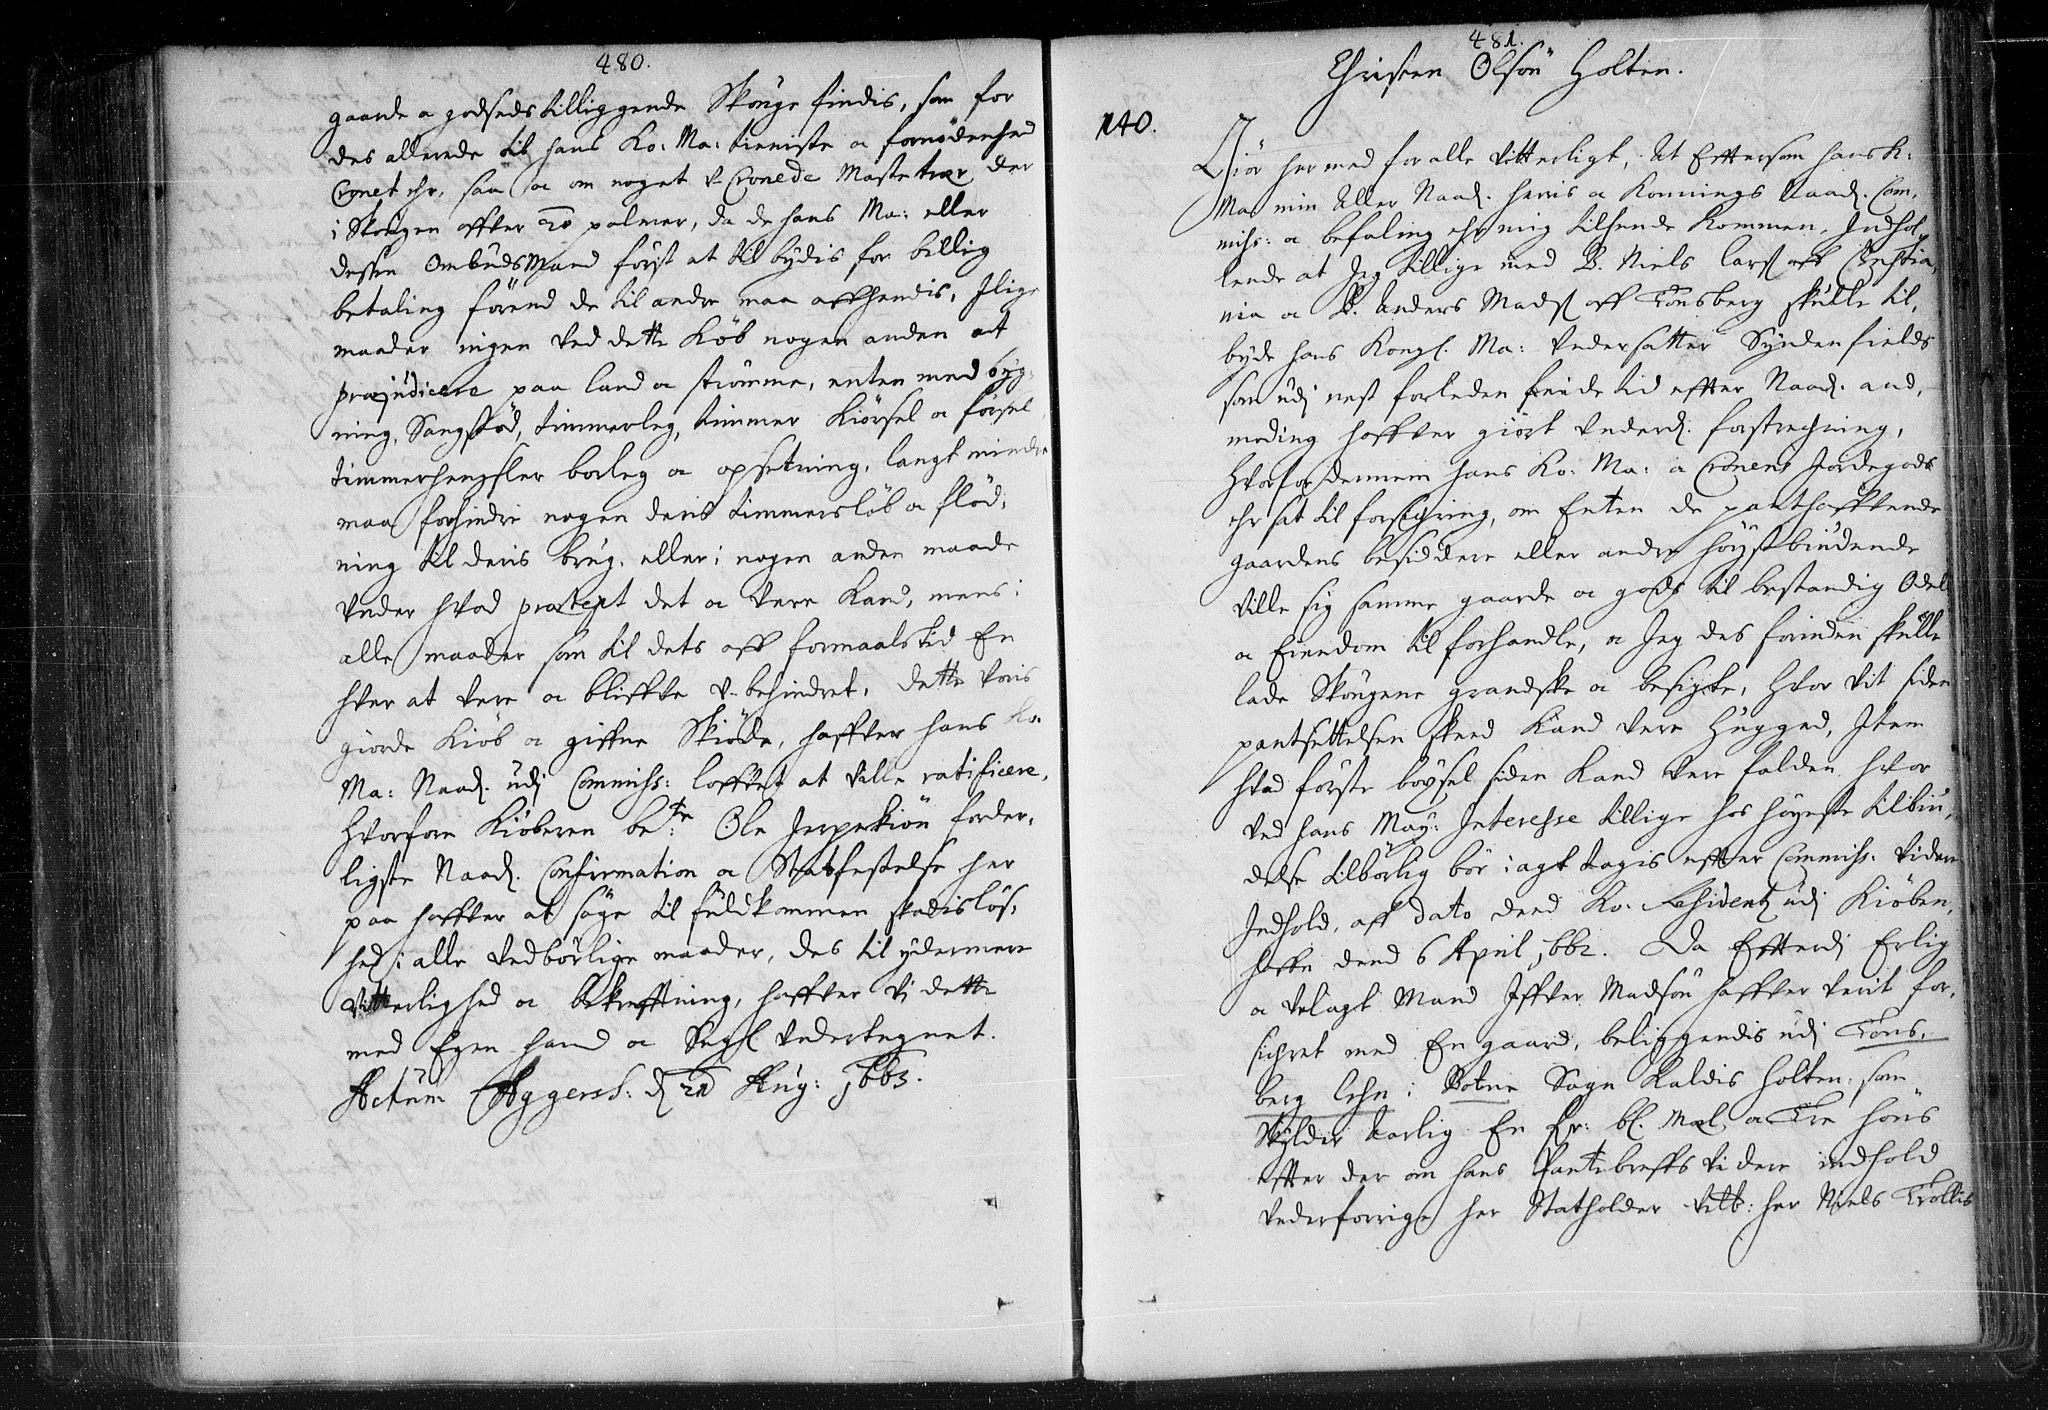 480.
gaarde oc godseds tilliggende Skouge findis, som for
des allerede til hans Ko: Ma: tieniste oc fornödenhed
Cronet ehr, saa oc om noget v-Cronede Mastetræer der
i Skougen offver 20 palmer, da de hans Ma: eller
dessen OmbudsMand först at tilbydis for billig
betaling förend de til andre maa affhendis, Jlige
maader ingen ved dette Kiöb nogen anden at
præjudicere paa land oc strömme, enten med byg,
ning, Saugstöd, timmerleg, timmer Kiörsel oc försel
timmerhengsler borleg oc opsetning, langt mindre
maa forhindre nogen deris timmerslöb oc flöd,
ning til deris brug, eller i nogen anden maade
vnder hvad prætext det oc vere kand, mens i
alle maader som til dets aff formaals tid En
hver at vere oc bliffve v-behindret, dette voris
giorde Kiöb oc giffne Skiöde, haffver hans Ko:
Ma: Naad. udj Commiss: loffvet at ville ratificere,
Hvorfore Kiöberen bete: Ole Jespersön forder,
ligste Naad. Confirmation oc Stadfestelse her
paa haffver at söge til fuldkommen skadislös,
hed i alle vedbörlige maader, des til ydermere
vitterlighed oc bekrefftning, haffver vi dette
med Egen haand oc Segl vndertegnet.
Actum Aggersh: d 21 Aug: 1663.
481.
Christen Olsön Holten.
140.
Giör hermed for alle vitterligt, At Efftersom hans K:
Mas min Aller Naad. herris oc Konnings Naad. Com,
miss: oc befaling ehr mig tilhende kommen, Indhol,
lende at Jeg tillige med B. Niels Larss: aff Christia,
nia oc B. Anders Madss: aff Tonsberg skulle til,
byde hans Kongl. Ma: Vndersatter Syndenfields
som udj nest forleden feide tid effter Naad. and,
moding haffver giort vnderd. forstrechning,
Hvorfor dennem hans Ko: Ma: oc Cronens Jordegods
ehr sat til forsichring, om Enten de panthaffvende
gaardens besiddere eller andre höystbiudende
ville sig samme gaarde oc gods til bestandig Odel
oc Eiendom til forhandle, oc Jeg des forinden skulle
lade Skougene grandske oc besigte, hvor vit siden
pantsettelsen skeed kand vere hugged, Item
hvad förste böxsel siden kand vere falden hvor
ved hans May: Interesse tillige hos höyeste tilbiu,
delse tilbörlig bör i agt tagis effter Commiss: videre
Indhold, aff dato deris Ko: Residentz udj Kiöben,
haffn dend 6 April 1662. Da Efftterdj Erlig
oc velagt Mand Iffver Madsön haffver verit for,
sichret med En gaard, beliggendis udj Tons,
berg lehn i Botne Sogn kaldis Holten, som
skylder aarlig En Hr: bl. Mel oc Tre höns
effter der om hans Pantebreffs videre indhold
vnder forrige her Statholder velb: her Niels Trollis